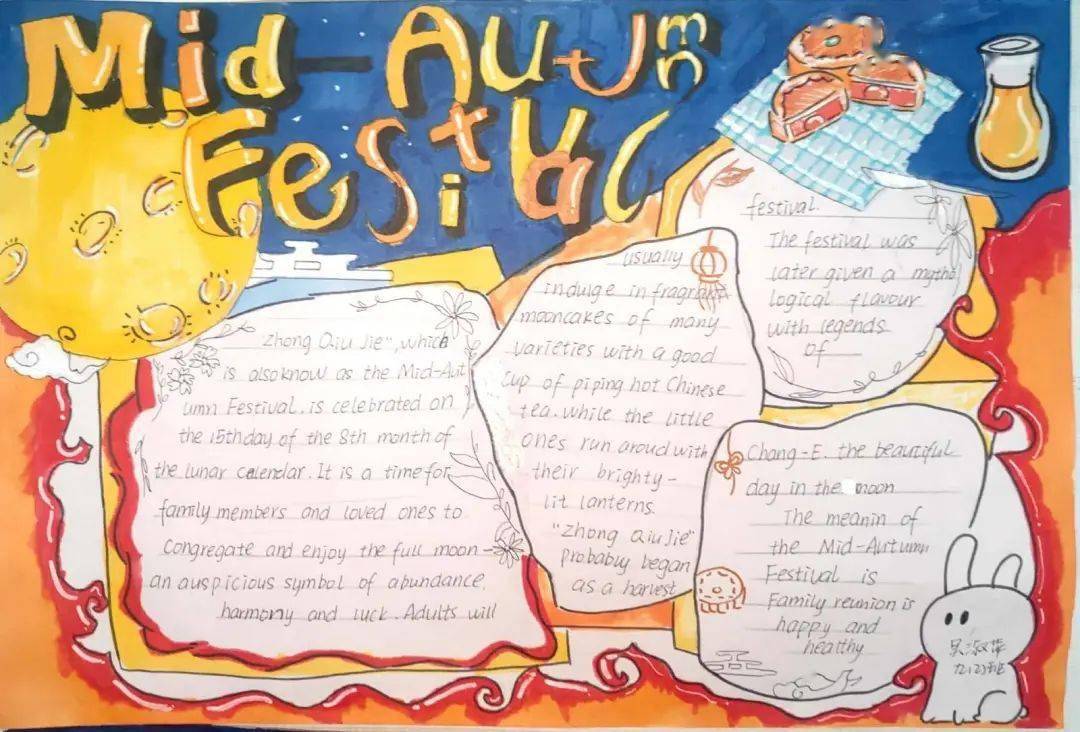 Mid-Autumn
Festival
Zhong Qiu Jie", which
is also know as the Mid-Aut
umn Festival. is celebrated on
the 15th day of the 8th month of
the lunar calendar. It is a time for
family members and loved ones to
Congregate and enjoy the full moon-
an auspicious symbol of abundance.
harmony and luck. Adults will
usually
indulge in fragrant
mooncakes of many
varieties with a good
cup of piping hot Chinese
tea. While the little
ones run aroud with
their brighty-
lit lanterns.
"Zhong Qiu Jie"
probably began
as a harvest
festival.
The festival was
later given a mytho
logical flavour
with legends
of
Chang-E. the beautiful
day in the moon
The meanin of
the Mid-Autumn
Festival is
Family reunion is
happy and
healthy